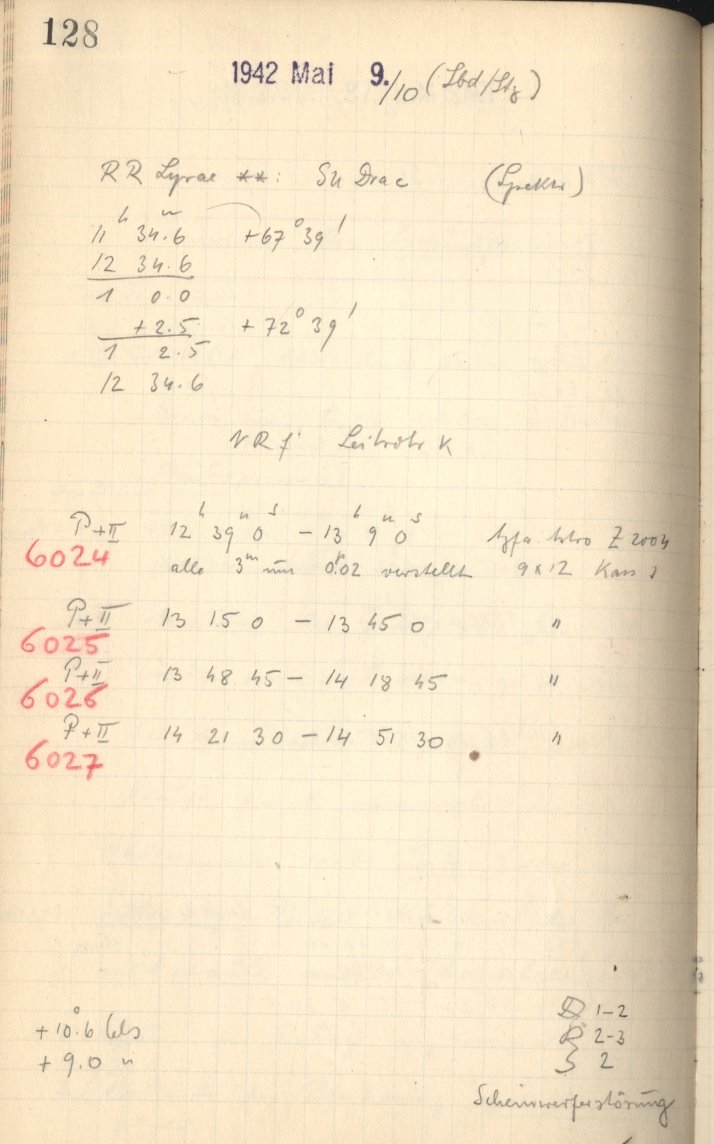 128
1942 Mai 9./10 (Lbd/Stz)
RR Lyrae **: SU Drac (Spektr)
11h 34m.6 +67° 39'
12 34.6
1 0.0
+2.5 +72° 39'
1 2.5
12 34.6
Leitrohr K
P+II 12h 39m 0s – 13h 9m 0s Agfa Astro Z 2004
6024 alle 3m um 0.02 verstellt 9x12 Kass 1
P+II 13 15 0 – 13 45 0 "
6025
P+II 13 48 45 – 14 18 45 "
6026
P+II 14 21 30 – 14 51 30 "
6027
+10°.6 Cels
+9.0 "
D 1-2
R 2-3
S 2
Scheinwerferstörung